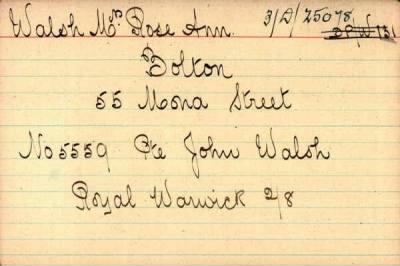 Walsh Mrs Rose Ann. 3/D/25078
Bolton
55 Mona Street
No 5559 Pte John Walsh
Royal Warwick 2/8